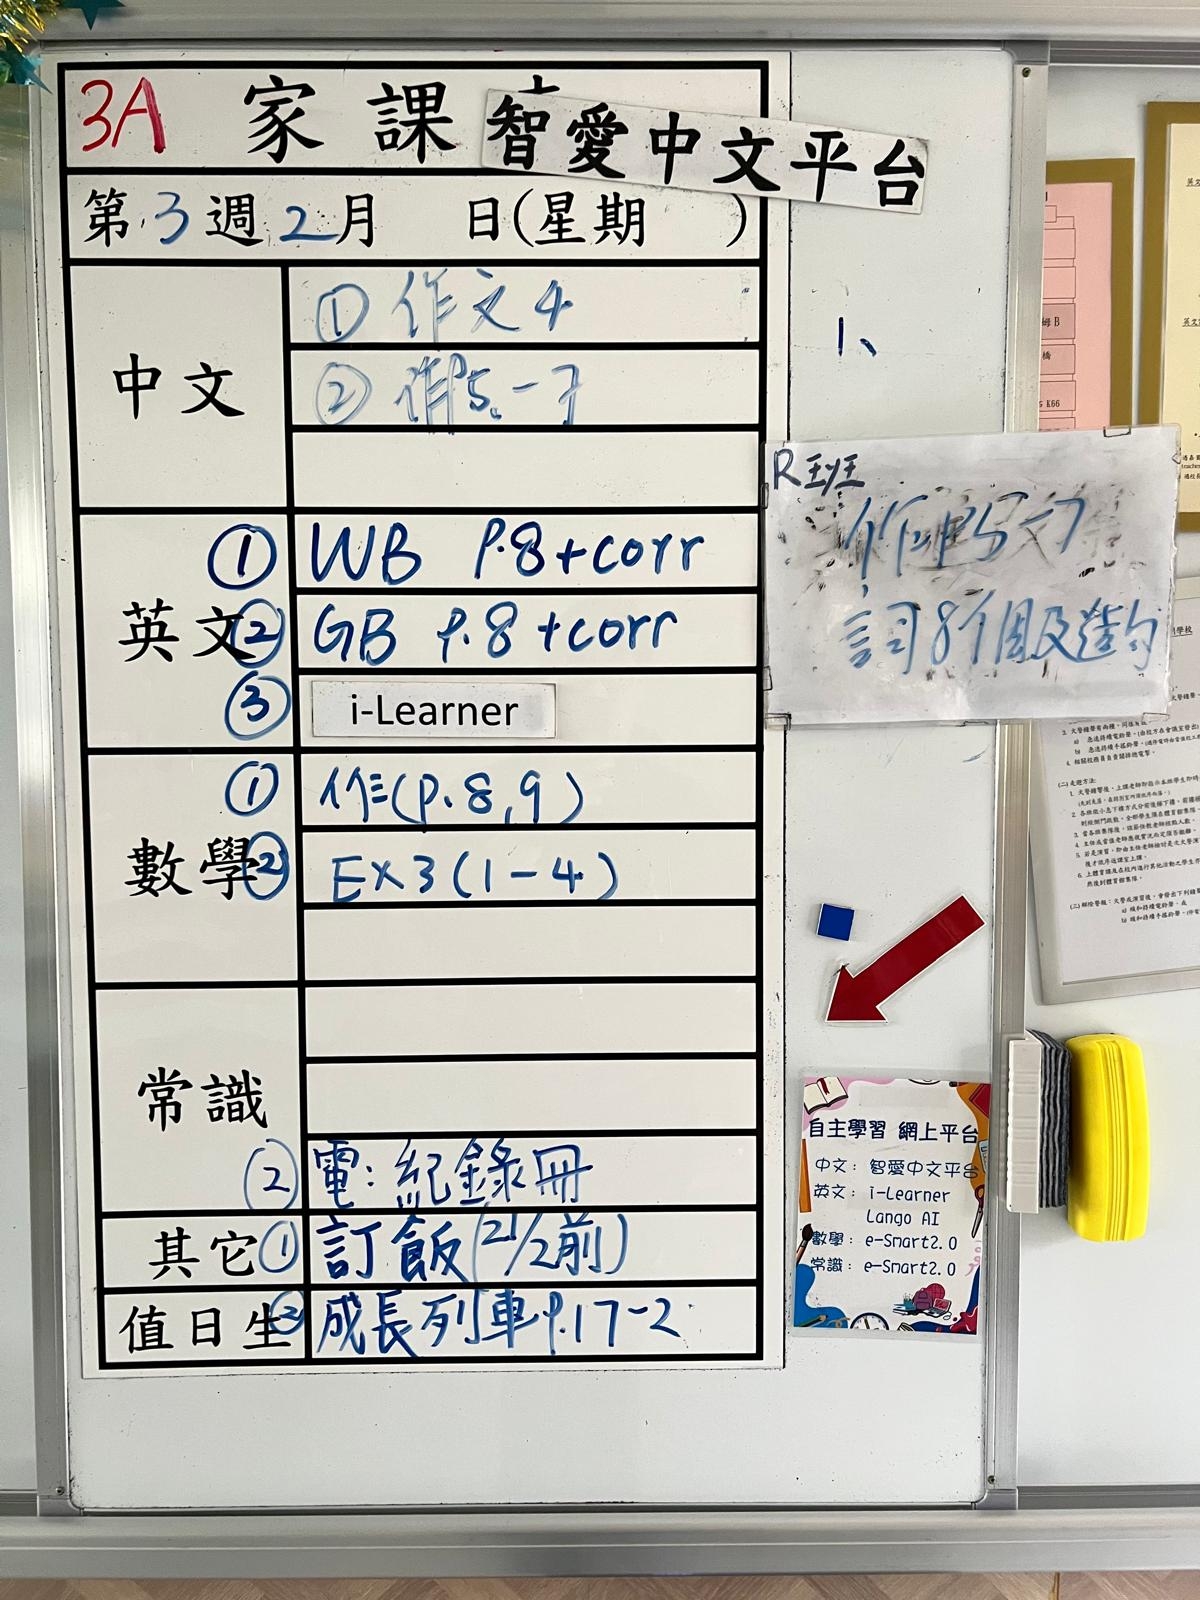 3A 家課
智愛中文平台
第3週2月 日(星期 )
中文
① 作文4
② 作P5-7
英文
① WB P.8+corr
② GB P.8+corr
③ i-Learner
數學
① 作(P.8,9)
② Ex3(1-4)
常識
② 電:紀錄冊
其它① 訂飯(21/2前)
值日生② 成長列車P.17-2
1、
R班
作P5-7
詞8個及造句
自主學習 網上平台
中文: 智愛中文平台
英文: i-Learner
Lango AI
數學: e-Smart2.0
常識: e-Smart2.0
姆B
橋
K66
英文
(二)走避方法: